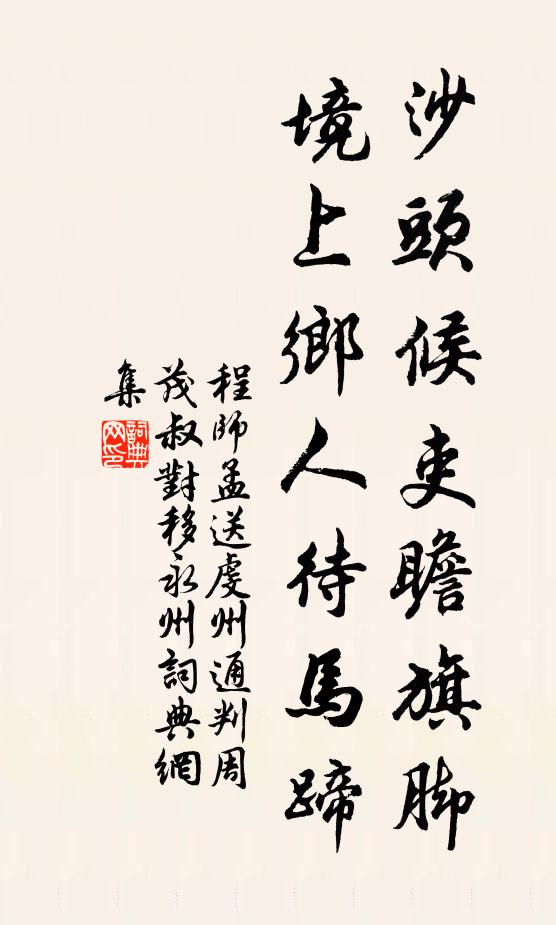 沙頭候吏瞻旗脚
境上鄉人待馬蹄
程師孟送虔州通判周
茂叔對移永州詞典網
集
詞典网印